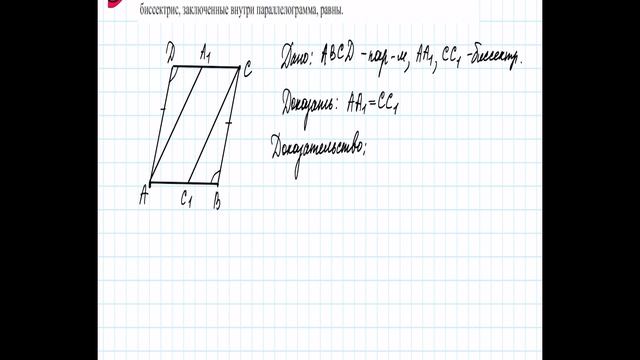 биссектрис, заключенные внутри параллелограмма, равны.
Дано: ABCD - пар-м, AA₁, CC₁ - биссектр.
Доказать: AA₁ = CC₁
Доказательство:
D A₁ C
A C₁ B